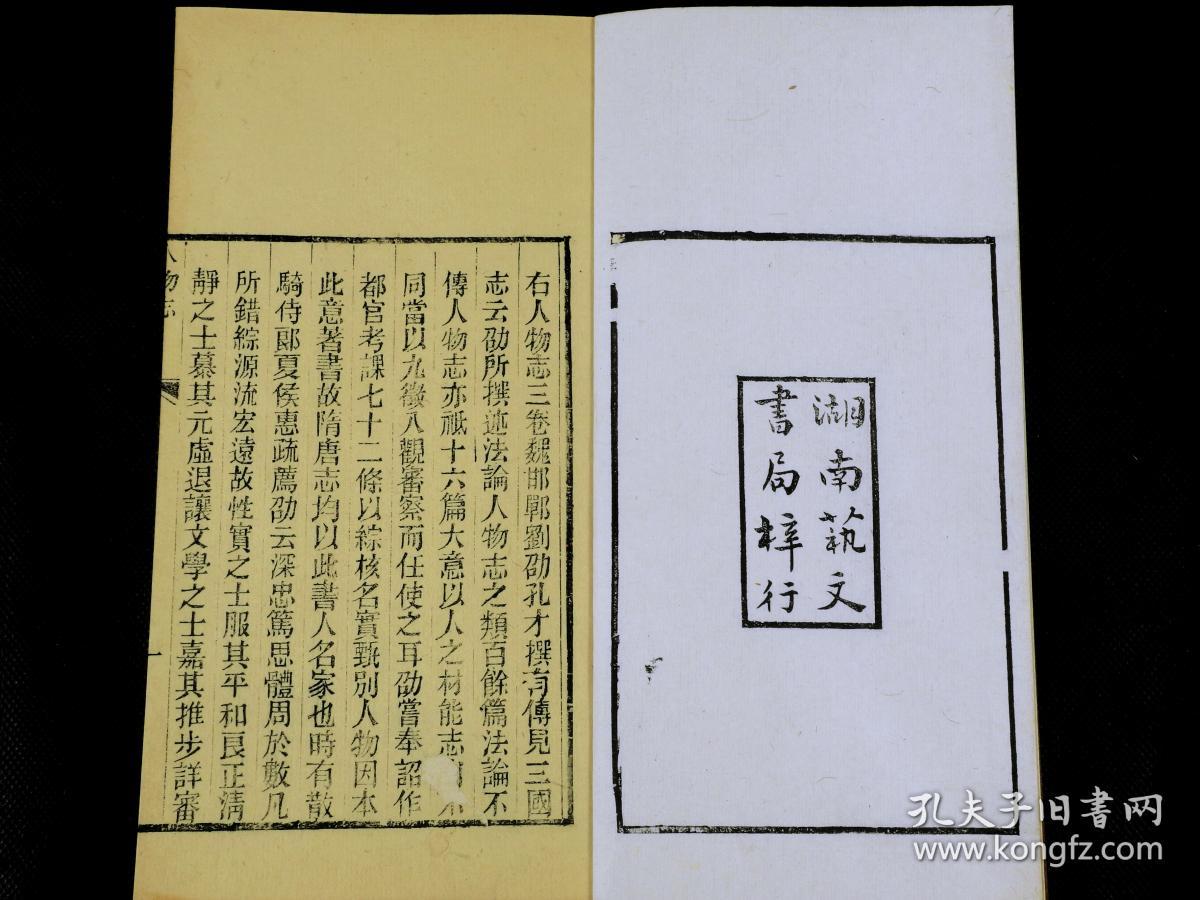 湖南藝文
書局梓行
右人物志三卷魏邯鄲劉劭孔才撰有傳見三國
志云劭所撰述法論人物志之類百餘篇法論不
傳人物志亦祗十六篇大意以人之材能志不
同當以九徵八觀審察而任使之耳劭嘗奉詔作
都官考課七十二條以綜核名實甄別人物因本
此意著書故隋唐志均以此書人名家也時有散
騎侍郞夏侯惠疏薦劭云深忠篤思體周於數凡
所錯綜源流宏遠故性實之士服其平和良正淸
靜之士慕其元虛退讓文學之士嘉其推步詳審
人物志
一
孔夫子旧书网
www.kongfz.com